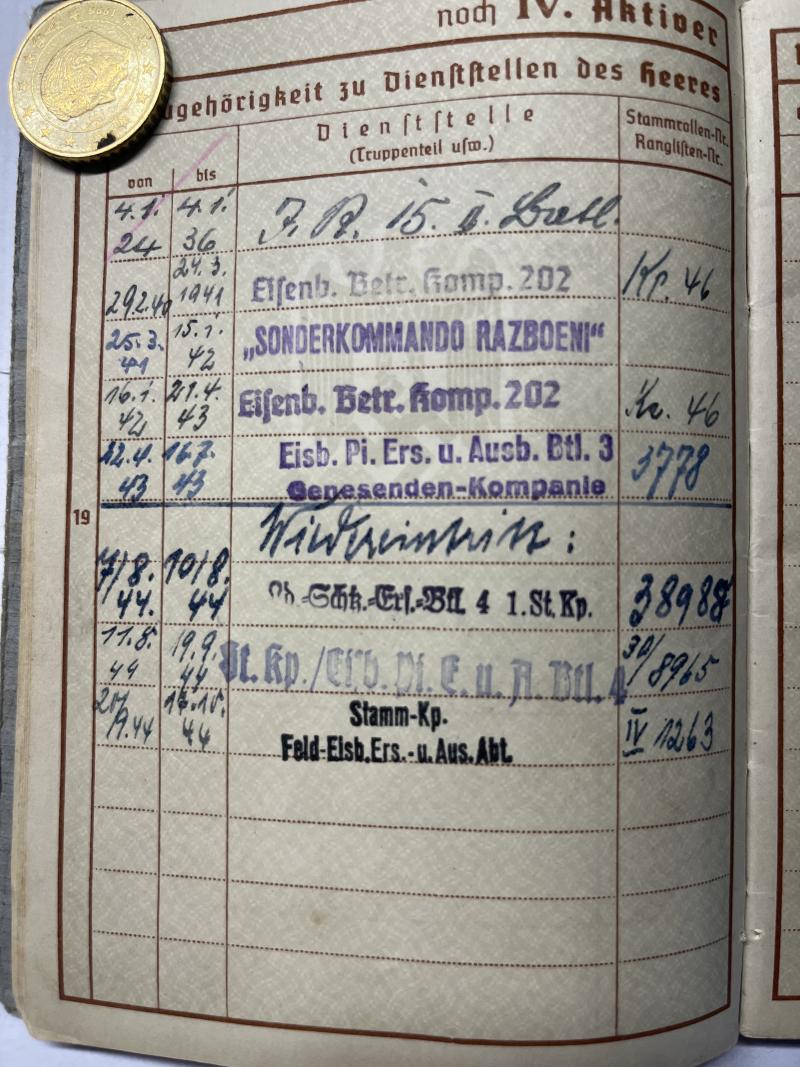 noch IV. Aktiver
ugehörigkeit zu Dienststellen des Heeres
von bis Dienststelle (Truppenteil usw.) Stammrollen-Nr. Ranglisten-Nr.
4.1. 24 4.1. 36 J. R. 15. II. Batl.
29.2.40 24.3. 1941 Eisenb. Betr. Komp. 202 Kr. 46
25.3. 41 15.1. 42 „SONDERKOMMANDO RAZBOENI“
16.1. 42 21.4. 43 Eisenb. Betr. Komp. 202 Kr. 46
22.4. 43 16.7. 43 Eisb. Pi. Ers. u. Ausb. Btl. 3 3778
Genesenden-Kompanie
19
Wiedereintritt:
7/8. 44. 10/8. 44 -Schtz.-Ers.-Btl. 4 1. St. Kp. 38988
11.8. 44 19.9. 44 St. Kp./Eisb. Pi. E. u. A. Btl. 4 30/8965
9.44 44 Stamm-Kp.
Feld-Eisb.Ers.-u.Aus.Abt. IV 1263